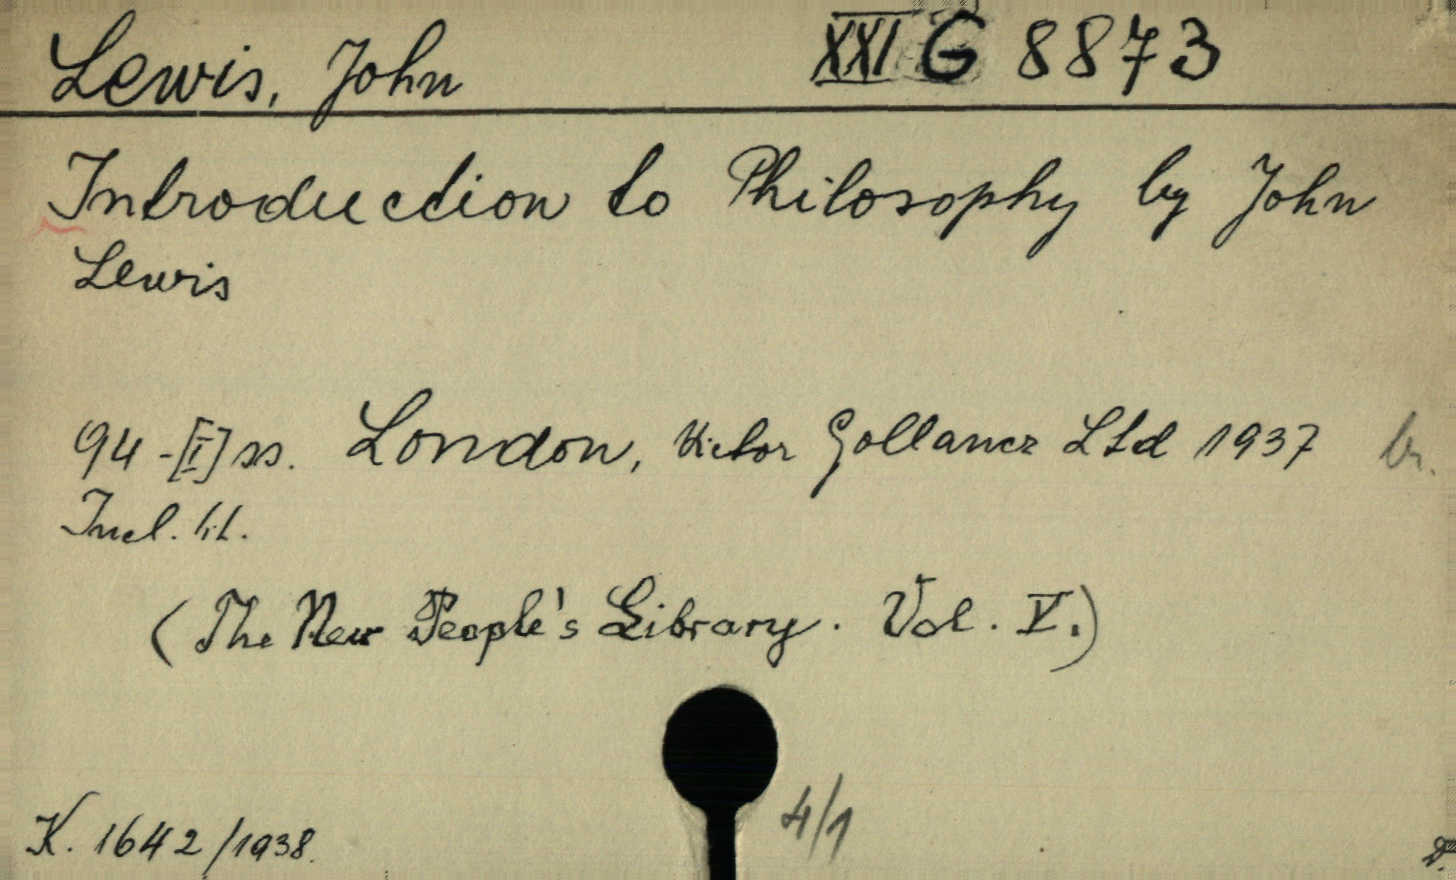 Lewis, John XXI G 8873
Introduction to Philosophy by John
Lewis
94-[I] ss. London, Victor Gollancz Ltd 1937 br.
Incl. lit.
(The New People's Library. Vol. V.)
4/1
K. 1642/1938.
D.